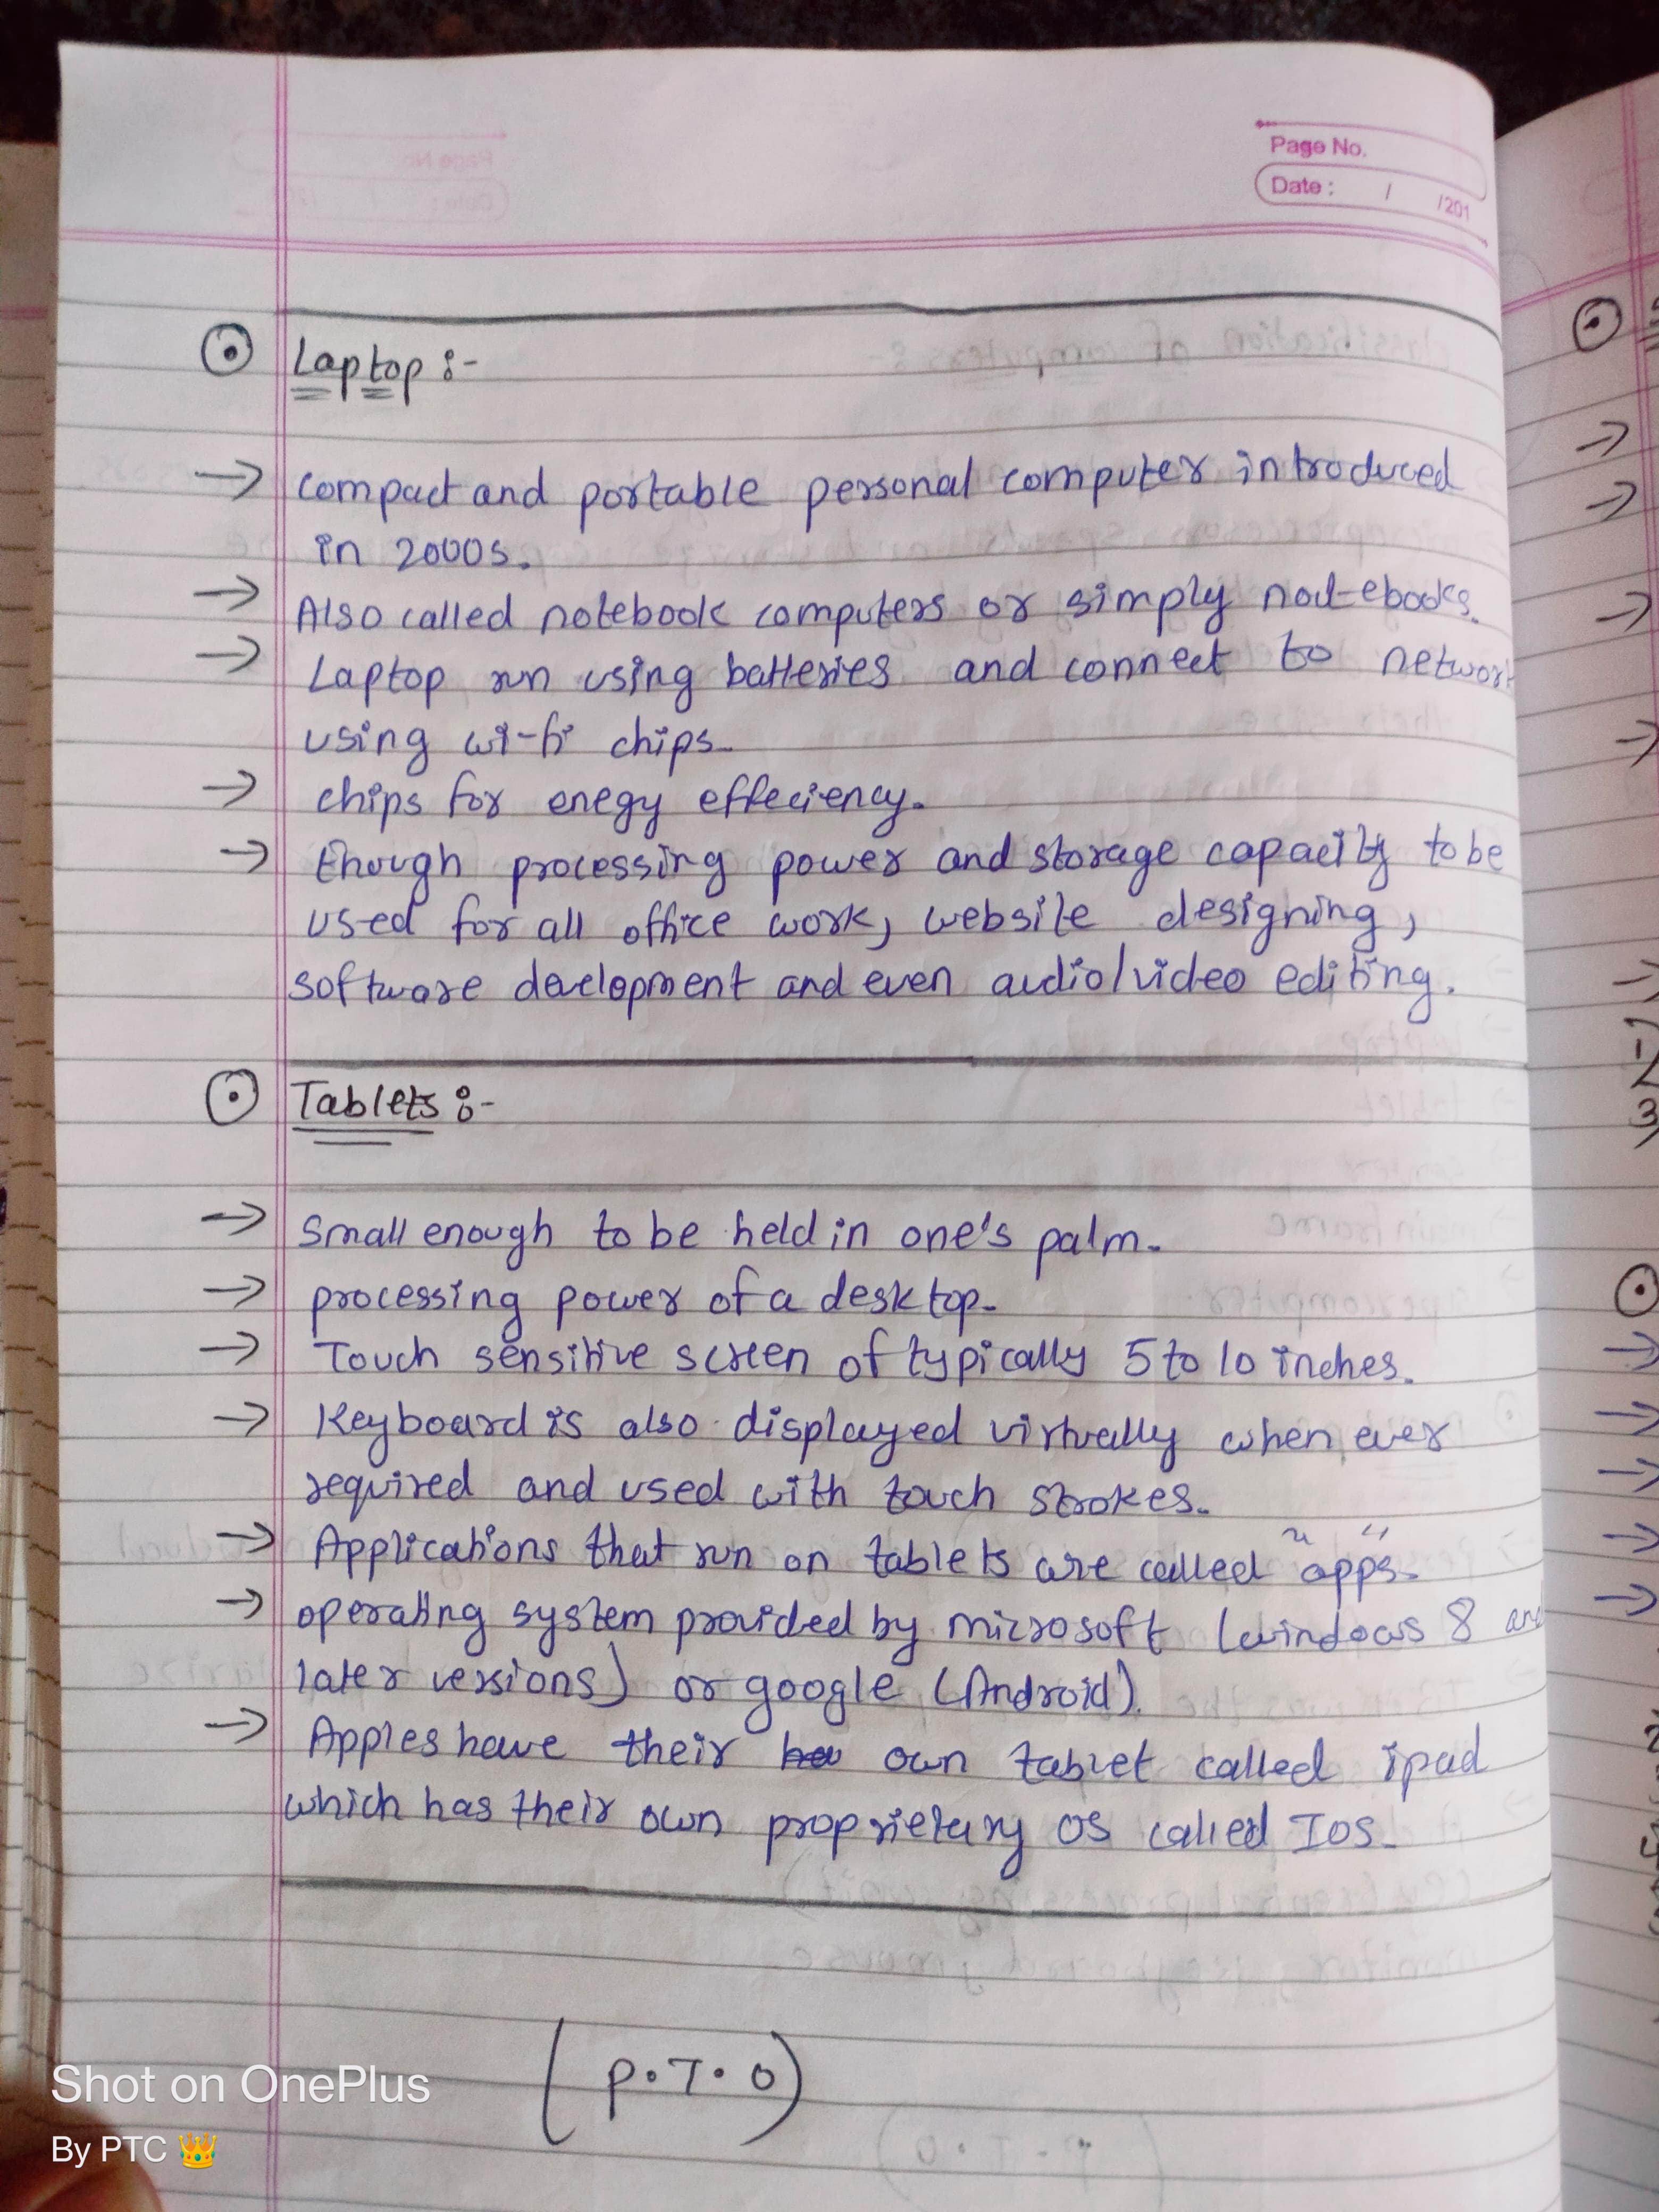 Page No.
Date : / /201
Laptop :-
→ compact and portable personal computer introduced
in 2000s.
→ Also called notebook computers or simply notebooks.
→ Laptop run using batteries and connect to network
using wi-fi chips.
→ chips for enegy effeciency.
→ Enough processing power and storage capacity to be
used for all office work, website designing,
software development and even audio/video editing.
Tablets :-
→ Small enough to be held in one's palm.
→ processing power of a desktop.
→ Touch sensitive screen of typically 5 to 10 inches.
→ Keyboard is also displayed virtually when ever
required and used with touch strokes.
→ Applications that run on tablets are called "apps".
→ operating system provided by microsoft (windows 8 and
later versions) or google (Android).
→ Apples have their own tablet called ipad
which has their own proprietary OS called Ios.
(P.T.O)
Shot on OnePlus
By PTC 👑